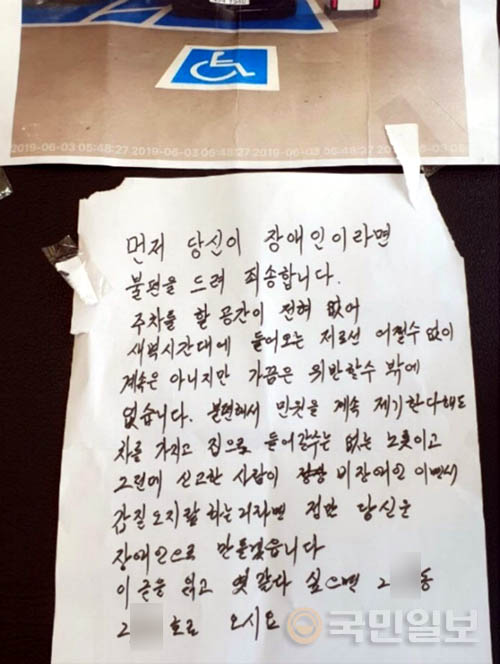 2019-06-03 05:48:27 2019-06-03 05:48:27 2019-06-03 05:48:27
먼저 당신이 장애인이라면
불편을 드려 죄송합니다.
주차를 할 공간이 전혀 없어
새벽시간대에 들어오는 저로선 어쩔수 없이
계속은 아니지만 가끔은 위반할수 밖에
없습니다. 불편해서 민원을 계속 제기한다해도
차를 가지고 집으로 들어갈수는 없는 노릇이고
그런데 신고한 사람이 정말 비장애인 이면서
갑질 오지랖 하는거라면 정말 당신은
장애인으로 만들겠습니다
이 글을 읽고 엿같다 싶으면 2 동
2 호로 오시요
국민일보